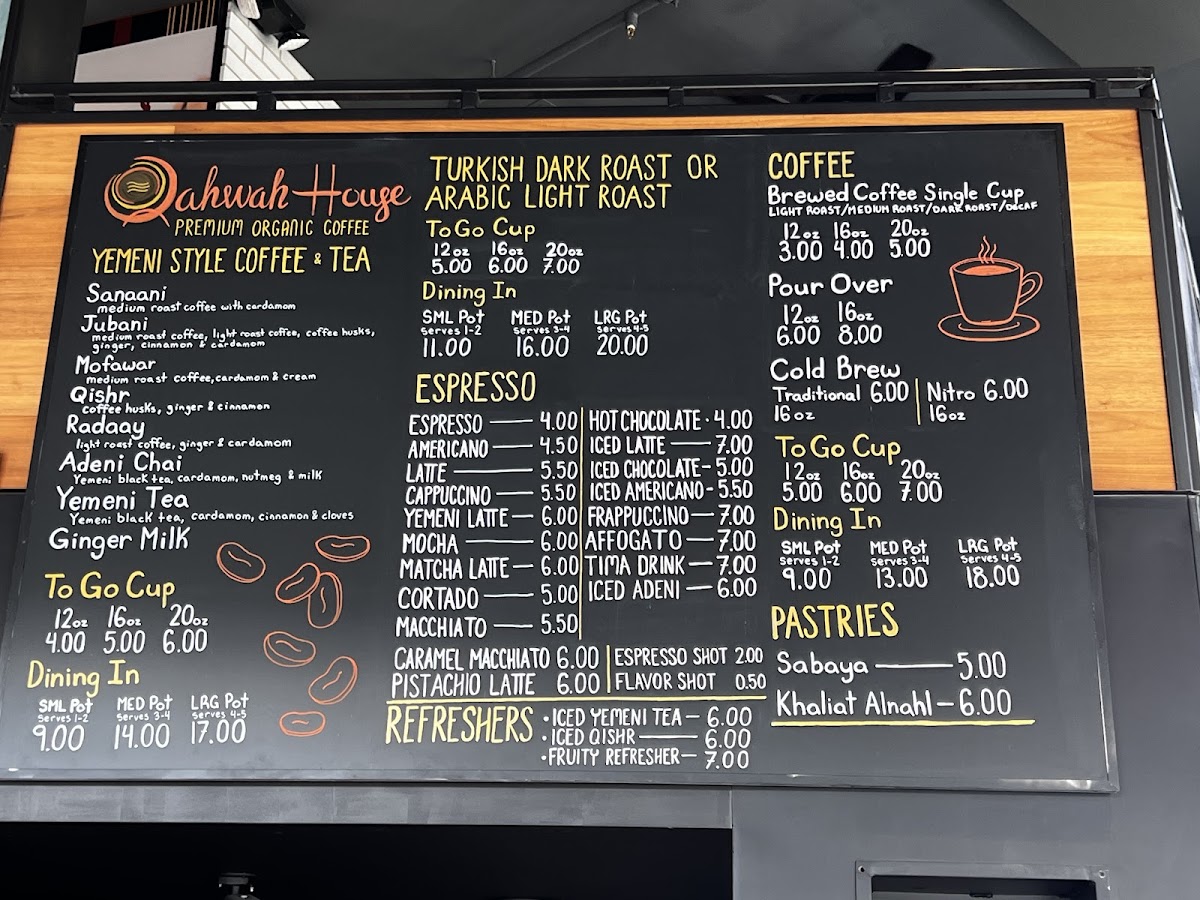 Qahwah House
PREMIUM ORGANIC COFFEE
YEMENI STYLE COFFEE & TEA
Sanaani
medium roast coffee with cardamom
Jubani
medium roast coffee, light roast coffee, coffee husks,
ginger, cinnamon & cardamom
Mofawar
medium roast coffee, cardamom & cream
Qishr
coffee husks, ginger & cinnamon
Radaay
light roast coffee, ginger & cardamom
Adeni Chai
Yemeni black tea, cardamom, nutmeg & milk
Yemeni Tea
Yemeni black tea, cardamom, cinnamon & cloves
Ginger Milk
To Go Cup
12oz 16oz 20oz
4.00 5.00 6.00
Dining In
SML Pot MED Pot LRG Pot
Serves 1-2 Serves 3-4 Serves 4-5
9.00 14.00 17.00
TURKISH DARK ROAST OR
ARABIC LIGHT ROAST
To Go Cup
12oz 16oz 20oz
5.00 6.00 7.00
Dining In
SML Pot MED Pot LRG Pot
Serves 1-2 Serves 3-4 Serves 4-5
11.00 16.00 20.00
ESPRESSO
ESPRESSO — 4.00
AMERICANO — 4.50
LATTE — 5.50
CAPPUCCINO — 5.50
YEMENI LATTE — 6.00
MOCHA — 6.00
MATCHA LATTE — 6.00
CORTADO — 5.00
MACCHIATO — 5.50
HOT CHOCOLATE · 4.00
ICED LATTE — 7.00
ICED CHOCOLATE - 5.00
ICED AMERICANO - 5.50
FRAPPUCCINO — 7.00
AFFOGATO — 7.00
TIMA DRINK — 7.00
ICED ADENI — 6.00
CARAMEL MACCHIATO 6.00
PISTACHIO LATTE 6.00
ESPRESSO SHOT 2.00
FLAVOR SHOT 0.50
REFRESHERS
· ICED YEMENI TEA — 6.00
· ICED QISHR — 6.00
· FRUITY REFRESHER — 7.00
COFFEE
Brewed Coffee Single Cup
LIGHT ROAST/MEDIUM ROAST/DARK ROAST/DECAF
12oz 16oz 20oz
3.00 4.00 5.00
Pour Over
12oz 16oz
6.00 8.00
Cold Brew
Traditional 6.00
16oz
Nitro 6.00
16oz
To Go Cup
12oz 16oz 20oz
5.00 6.00 7.00
Dining In
SML Pot MED Pot LRG Pot
Serves 1-2 Serves 3-4 Serves 4-5
9.00 13.00 18.00
PASTRIES
Sabaya — 5.00
Khaliat Alnahl — 6.00